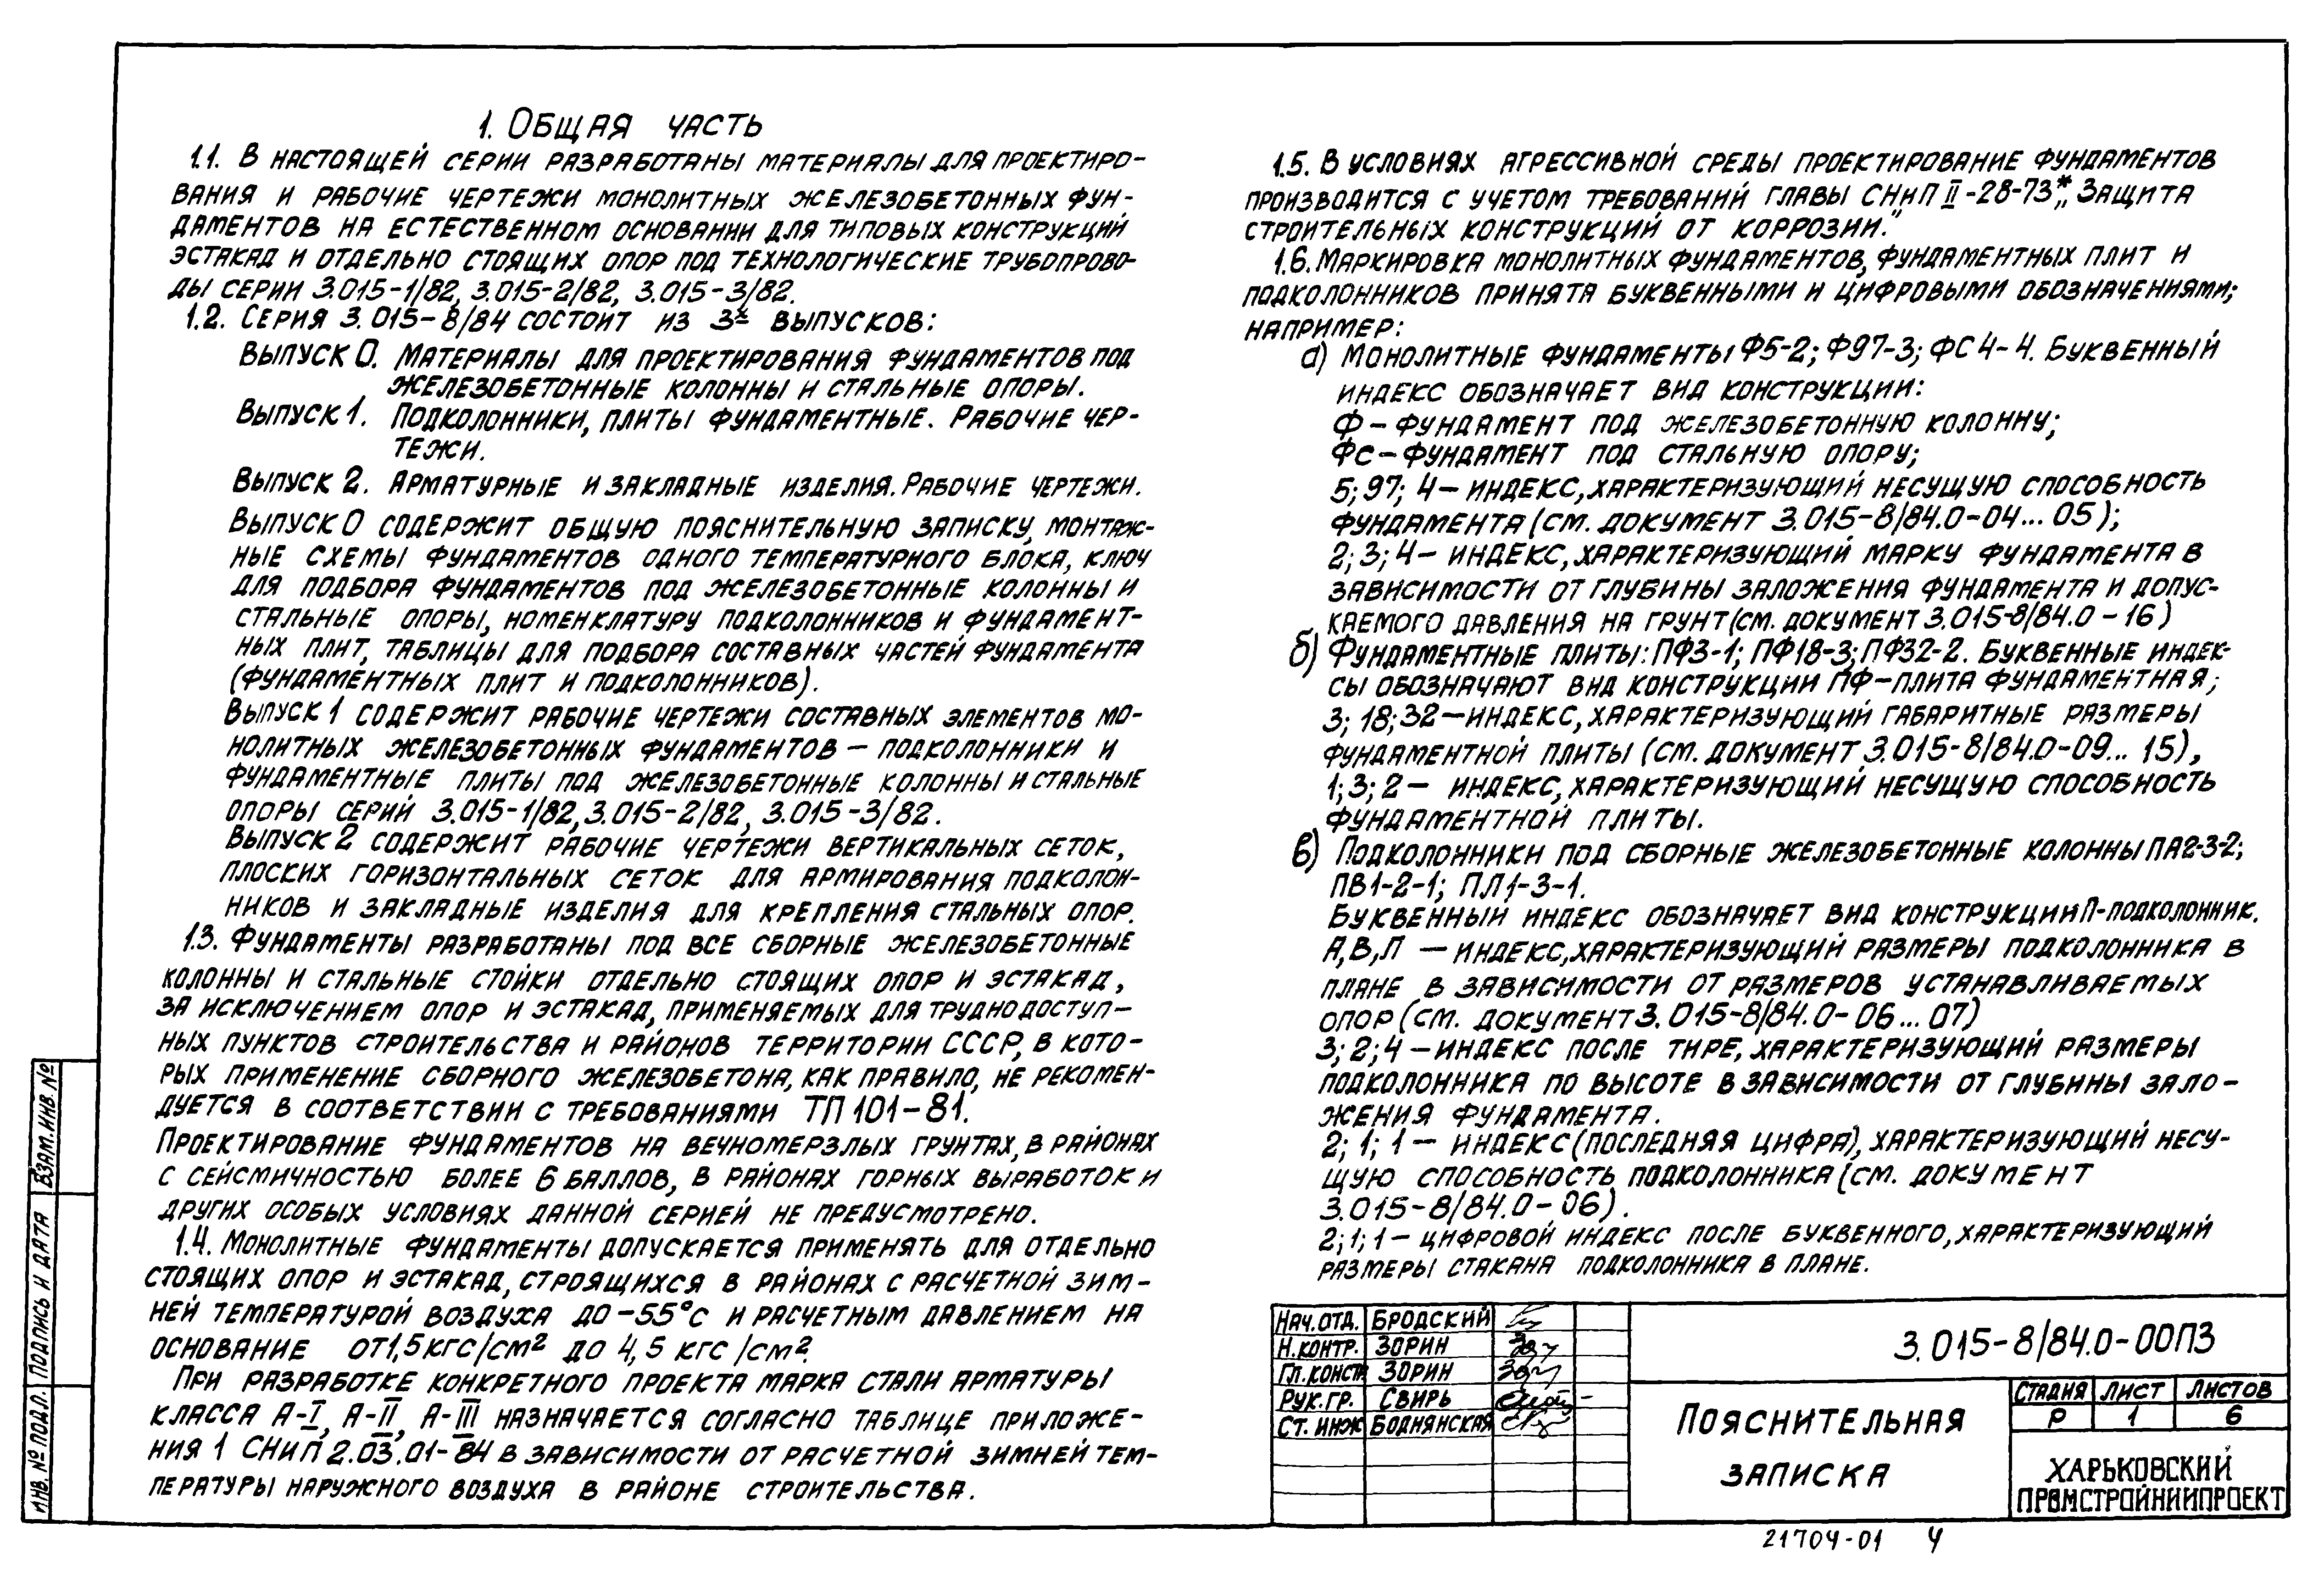 1. Общая часть
1.1. В настоящей серии разработаны материалы для проектиро-
вания и рабочие чертежи монолитных железобетонных фун-
даментов на естественном основании для типовых конструкций
эстакад и отдельно стоящих опор под технологические трубопрово-
ды серии 3.015-1/82, 3.015-2/82, 3.015-3/82.
1.2. Серия 3.015-8/84 состоит из 3х выпусков:
Выпуск 0. Материалы для проектирования фундаментов под
железобетонные колонны и стальные опоры.
Выпуск 1. Подколонники, плиты фундаментные. Рабочие чер-
тежи.
Выпуск 2. Арматурные и закладные изделия. Рабочие чертежи.
Выпуск 0 содержит общую пояснительную записку, монтаж-
ные схемы фундаментов одного температурного блока, ключ
для подбора фундаментов под железобетонные колонны и
стальные опоры, номенклатуру подколонников и фундамент-
ных плит, таблицы для подбора составных частей фундамента
(фундаментных плит и подколонников).
Выпуск 1 содержит рабочие чертежи составных элементов мо-
нолитных железобетонных фундаментов — подколонники и
фундаментные плиты под железобетонные колонны и стальные
опоры серий 3.015-1/82, 3.015-2/82, 3.015-3/82.
Выпуск 2 содержит рабочие чертежи вертикальных сеток,
плоских горизонтальных сеток для армирования подколон-
ников и закладные изделия для крепления стальных опор.
1.3. Фундаменты разработаны под все сборные железобетонные
колонны и стальные стойки отдельно стоящих опор и эстакад,
за исключением опор и эстакад, применяемых для труднодоступ-
ных пунктов строительства и районов территории СССР, в кото-
рых применение сборного железобетона, как правило, не рекомен-
дуется в соответствии с требованиями ТП 101-81.
Проектирование фундаментов на вечномерзлых грунтах, в районах
с сейсмичностью более 6 баллов, в районах горных выработок и
других особых условиях данной серией не предусмотрено.
1.4. Монолитные фундаменты допускается применять для отдельно
стоящих опор и эстакад, строящихся в районах с расчетной зим-
ней температурой воздуха до -55°С и расчетным давлением на
основание от 1,5 кгс/см² до 4,5 кгс/см².
При разработке конкретного проекта марка стали арматуры
класса А-I, А-II, А-III назначается согласно таблице приложе-
ния 1 СНиП 2.03.01-84 в зависимости от расчетной зимней тем-
пературы наружного воздуха в районе строительства.
1.5. В условиях агрессивной среды проектирование фундаментов
производится с учетом требований главы СНиП II-28-73* „Защита
строительных конструкций от коррозии."
1.6. Маркировка монолитных фундаментов, фундаментных плит и
подколонников принята буквенными и цифровыми обозначениями;
например:
а) Монолитные фундаменты Ф5-2; Ф97-3; ФС4-4. Буквенный
индекс обозначает вид конструкции:
Ф — фундамент под железобетонную колонну;
Фс — фундамент под стальную опору;
5; 97; 4 — индекс, характеризующий несущую способность
фундамента (см. документ 3.015-8/84.0-04... 05);
2; 3; 4 — индекс, характеризующий марку фундамента в
зависимости от глубины заложения фундамента и допус-
каемого давления на грунт (см. документ 3.015-8/84.0-16)
б) Фундаментные плиты: ПФ3-1; ПФ18-3; ПФ32-2. Буквенные индек-
сы обозначают вид конструкции ПФ — плита фундаментная;
3; 18; 32 — индекс, характеризующий габаритные размеры
фундаментной плиты (см. документ 3.015-8/84.0-09... 15),
1; 3; 2 — индекс, характеризующий несущую способность
фундаментной плиты.
в) Подколонники под сборные железобетонные колонны ПА2-3-2;
ПВ1-2-1; ПЛ1-3-1.
Буквенный индекс обозначает вид конструкции П-подколонник.
А, В, Л — индекс, характеризующий размеры подколонника в
плане в зависимости от размеров устанавливаемых
опор (см. документ 3.015-8/84.0-06...07)
3; 2; 4 — индекс после тире, характеризующий размеры
подколонника по высоте в зависимости от глубины зало-
жения фундамента.
2; 1; 1 — индекс (последняя цифра), характеризующий несу-
щую способность подколонника (см. документ
3.015-8/84.0-06).
2; 1; 1 — цифровой индекс после буквенного, характеризующий
размеры стакана подколонника в плане.
Нач. отд. Бродский
Н. контр. Зорин
Гл. констр Зорин
Рук. гр. Свирь
Ст. инж Боднянская
3.015-8/84.0-00ПЗ
Пояснительная
записка
Стадия Лист Листов
Р 1 6
Харьковский
Промстройниипроект
Взам. инв. №
Подпись и дата
Инв. № подл.
21704-01 4